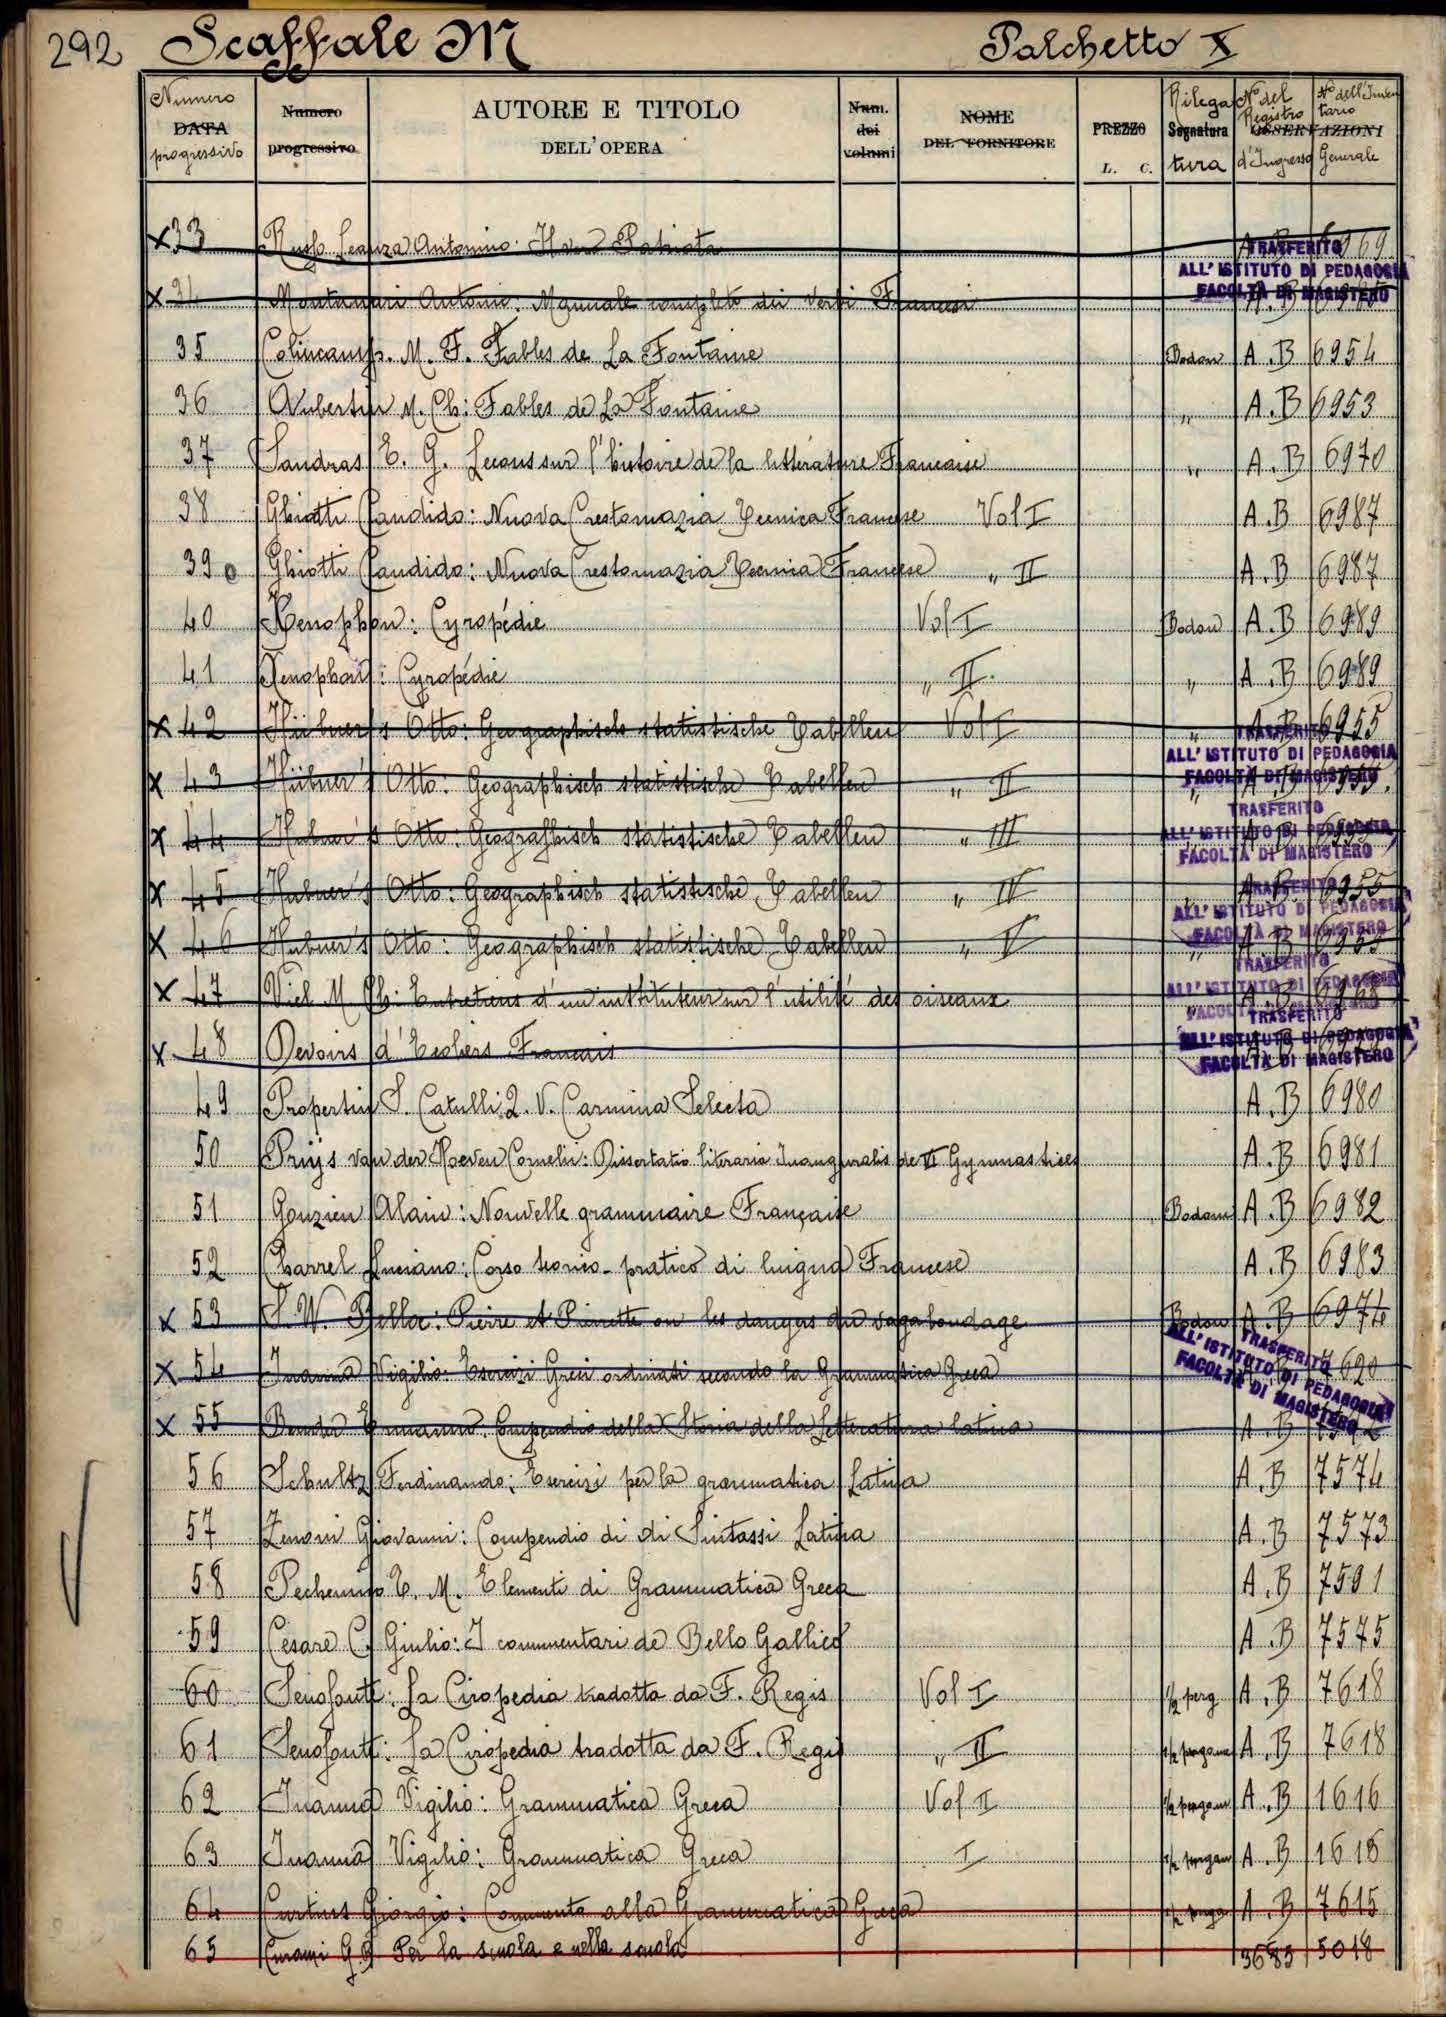 292 Scaffale M Palchetto X
Numero DATA progressivo Numero progressivo AUTORE E TITOLO DELL'OPERA Num. dei volumi NOME DEL FORNITORE PREZZO L. C. Rilega Segnatura tura N° del Registro d'Ingresso OSSERVAZIONI N° dell'Inventario Generale
x 33 Antonino: Patriota 6969
TRASFERITO
ALL'ISTITUTO DI PEDAGOGIA
FACOLTÀ DI MAGISTERO
x 34 Montanari Antonio: Manuale completo dei Verbi Francesi A.B
35 Colincamp. M. F. Fables de La Fontaine Bodon A.B 6954
36 Aubertin M. Ch: Fables de La Fontaine " A.B 6953
37 Sandras E. G. Lecons sur l'histoire de la littérature Francaise " A.B 6970
38 Ghiotti Candido: Nuova Crestomazia Tecnica Francese Vol I A.B 6987
39 Ghiotti Candido: Nuova Crestomazia Tecnica Francese " II A.B 6987
40 Xenophon: Cyropédie Vol I Bodon A.B 6989
41 Xenophon: Cyropédie " II " A.B 6989
x 42 Hübner's Otto: Geographisch statistische Tabellen Vol I " A.B 6955
TRASFERITO
ALL'ISTITUTO DI PEDAGOGIA
FACOLTÀ DI MAGISTERO
x 43 Hübner's Otto: Geographisch statistische Tabellen " II " A.B 6955
TRASFERITO
x 44 Hubner's Otto: Geographisch statistische Tabellen " III A.B
ALL'ISTITUTO DI PEDAGOGIA
FACOLTÀ DI MAGISTERO
x 45 Hubner's Otto: Geographisch statistische Tabellen " IV A.B 6955
TRASFERITO
ALL'ISTITUTO DI PEDAGOGIA
FACOLTÀ DI MAGISTERO
x 46 Hubner's Otto: Geographisch statistische Tabellen " V " A.B 6955
TRASFERITO
ALL'ISTITUTO DI PEDAGOGIA
x 47 Viel M Ch: Entretiens d'un instituteur sur l'utilité des oiseaux A.B 6968
FACOLTÀ DI MAGISTERO
TRASFERITO
x 48 Devoirs d'Ecoliers Francais
ALL'ISTITUTO DI PEDAGOGIA
FACOLTÀ DI MAGISTERO
49 S. Catulli Q. V. Carmina Selecta A.B 6980
50 Prijs van der Hoeven Cornelii: Dissertatio literaria Inauguralis de Gymnastices A.B 6981
51 Gouzien Alain: Nouvelle grammaire Française Bodon A.B 6982
52 Charrel Luciano: Corso teorico-pratico di lingua Francese A.B 6983
x 53 S. W. Belloc: Pierre et Pierrette ou les dangers du vagabondage Bodon A.B 6974
TRASFERITO
ALL'ISTITUTO DI PEDAGOGIA
FACOLTÀ DI MAGISTERO
x 54 Inama Vigilio: Esercizi Greci ordinati secondo la Grammatica Greca A.B 7620
x 55 Bender Ermanno: Compendio della Storia della Letteratura latina A.B
56 Schultz Ferdinando: Esercizi per la grammatica Latina A.B 7574
57 Zenoni Giovanni: Compendio di di Sintassi Latina A.B 7573
58 Pechenino E. M. Elementi di Grammatica Greca A.B 7591
59 Cesare C. Giulio: I commentari de Bello Gallico A.B 7575
60 Senofonte: La Ciropedia tradotta da F. Regis Vol I 1/2 perg A.B 7618
61 Senofonte: La Ciropedia tradotta da F. Regis " II 1/2 pergam A.B 7618
62 Inama Vigilio: Grammatica Greca Vol II 1/2 pergam A.B 1616
63 Inama Vigilio: Grammatica Greca I 1/2 pergam A.B 1616
64 Curtius Giorgio: Commento alla Grammatica Greca 1/2 perga A.B 7615
65 G. Per la scuola e nella scuola 3683 5018